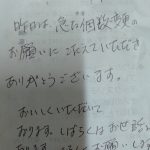 昨日は、急な個数変更の
お願いに応えていただき
ありがとうございます。
おいしくいただいて
おります。しばらくはお世話